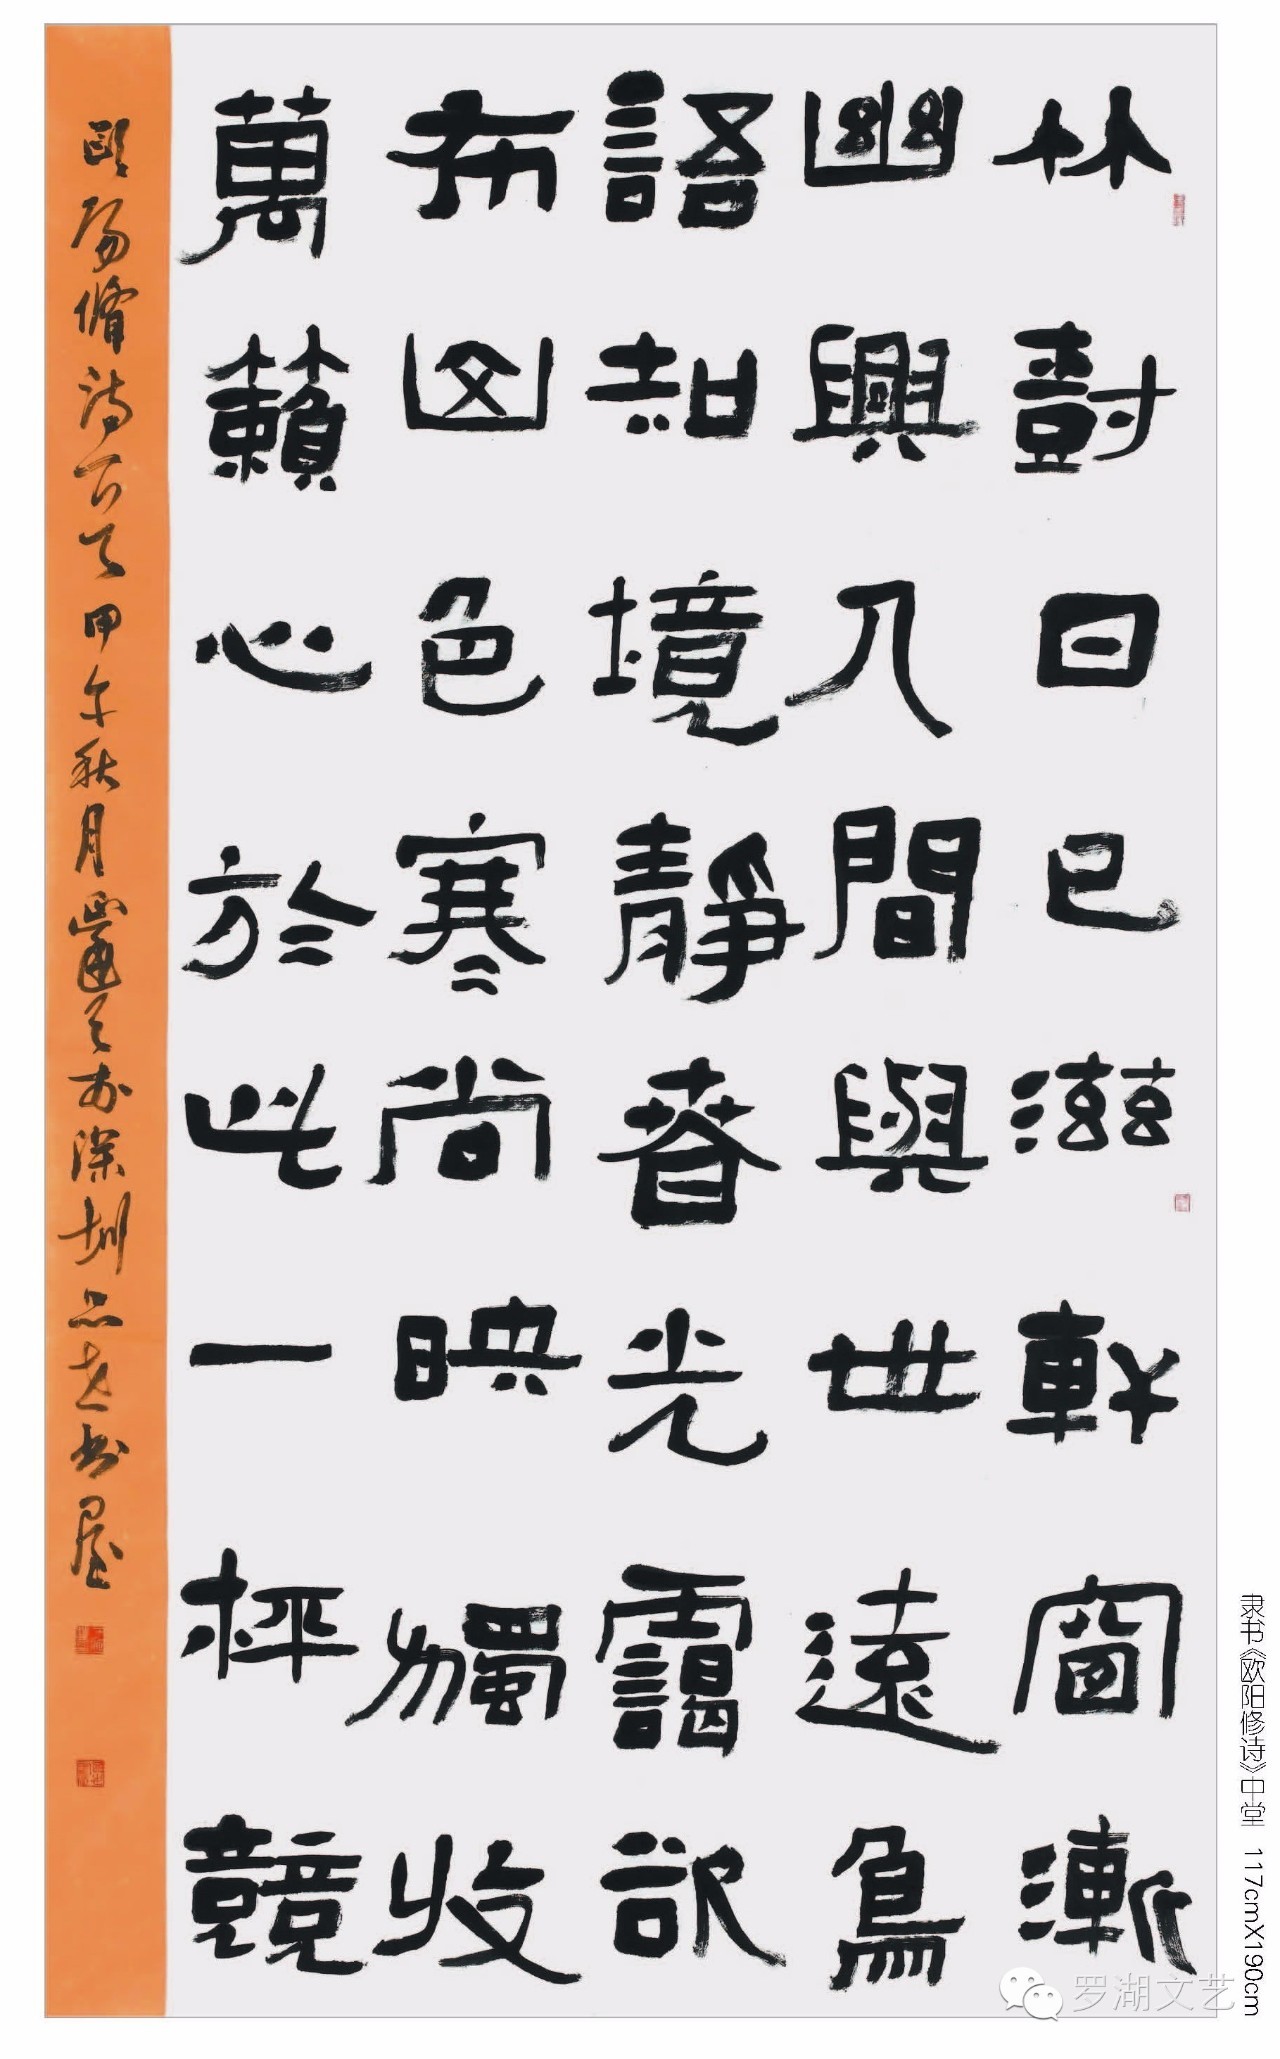 林樹日已滋軒窗漸
幽興人間與世遠鳥
語知境靜春光靄欲
布山色寒尚映獨收
萬籟心於此一枰競
歐陽修詩一首甲午秋月
於深圳品志書屋
隶书《欧阳修诗》中堂 117cmX190cm
罗湖文艺